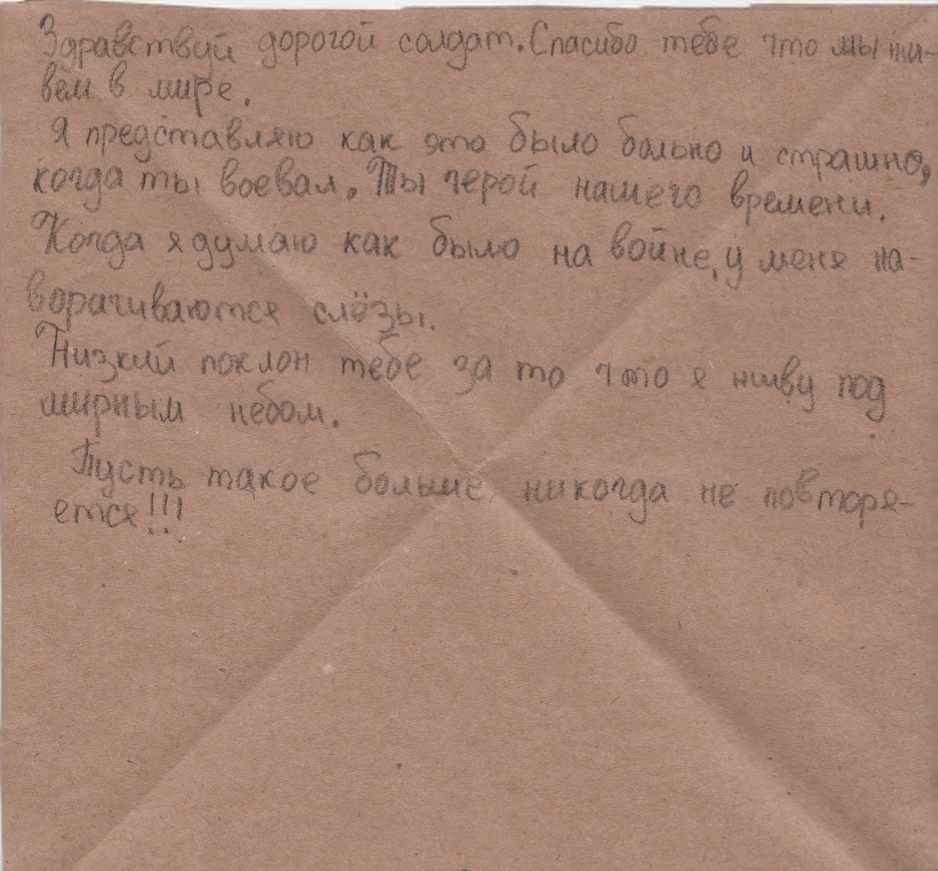 Здравствуй дорогой солдат. Спасибо тебе что мы жи-
вём в мире.
Я представляю как это было больно и страшно,
когда ты воевал. Ты герой нашего времени.
Когда я думаю как было на войне, у меня на-
ворачиваются слёзы.
Низкий поклон тебе за то что я живу под
мирным небом.
Пусть такое больше никогда не повторя-
ется!!!